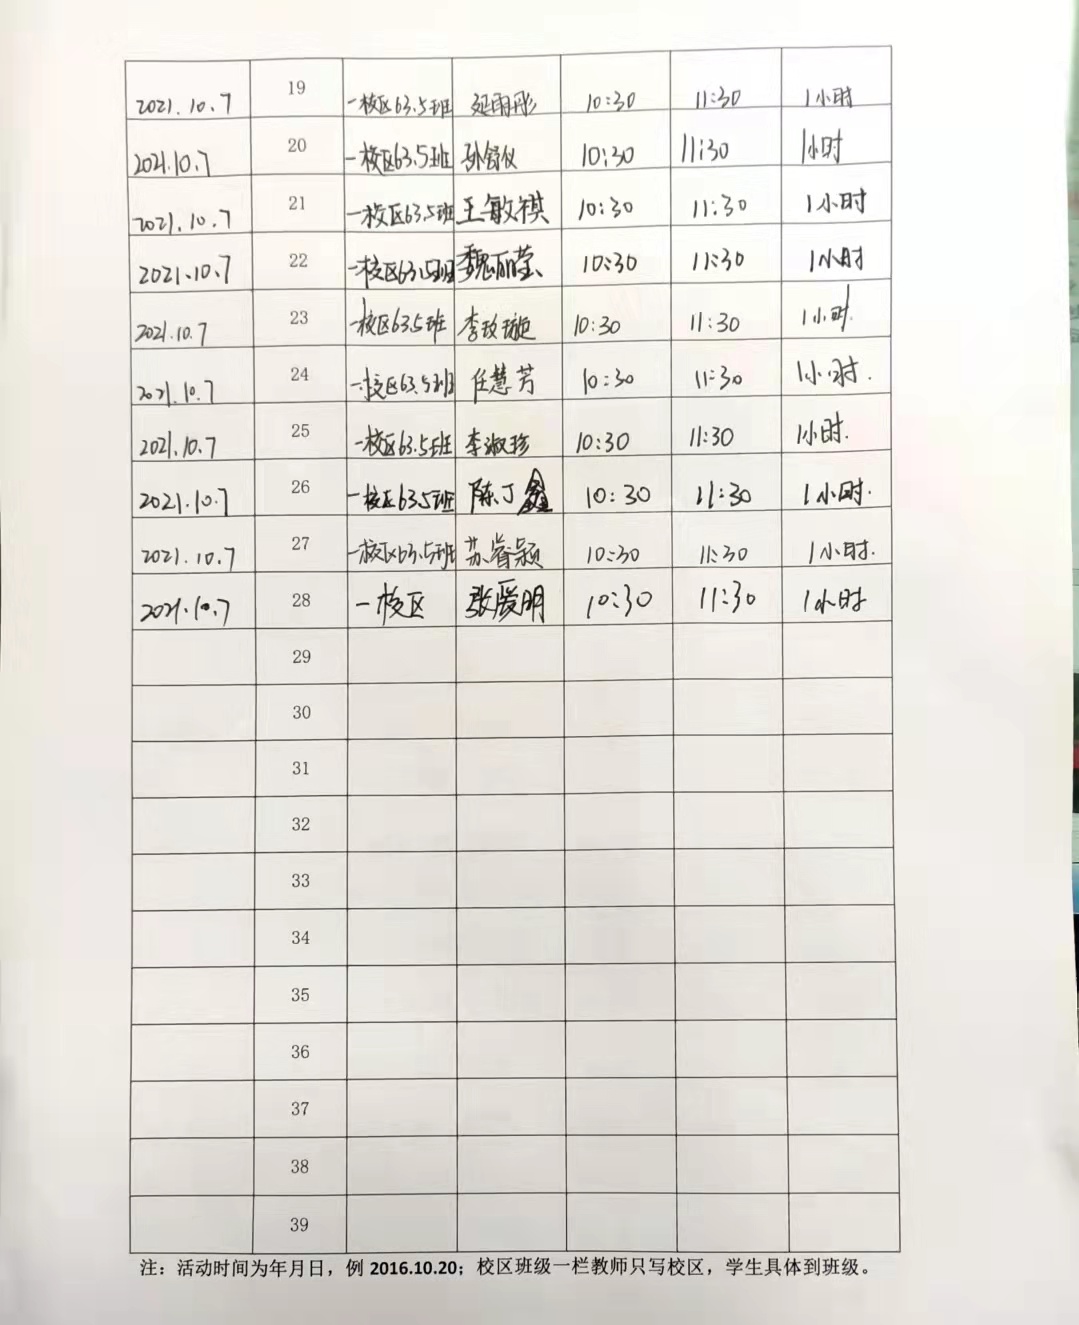 2021.10.7 19 一校区63.5班 延雨彤 10:30 11:30 1小时
2021.10.7 20 一校区63.5班 孙舒仪 10:30 11:30 1小时
2021.10.7 21 一校区63.5班 王敏祺 10:30 11:30 1小时
2021.10.7 22 一校区63.5班 魏丽莹 10:30 11:30 1小时
2021.10.7 23 一校区63.5班 李玫璇 10:30 11:30 1小时.
2021.10.7 24 一校区63.5班 任慧芳 10:30 11:30 1小时.
2021.10.7 25 一校区63.5班 李淑珍 10:30 11:30 1小时.
2021.10.7 26 一校区63.5班 陈丁鑫 10:30 11:30 1小时.
2021.10.7 27 一校区63.5班 苏睿颖 10:30 11:30 1小时.
2021.10.7 28 一校区 张爱明 10:30 11:30 1小时
29
30
31
32
33
34
35
36
37
38
39
注：活动时间为年月日，例 2016.10.20；校区班级一栏教师只写校区，学生具体到班级。